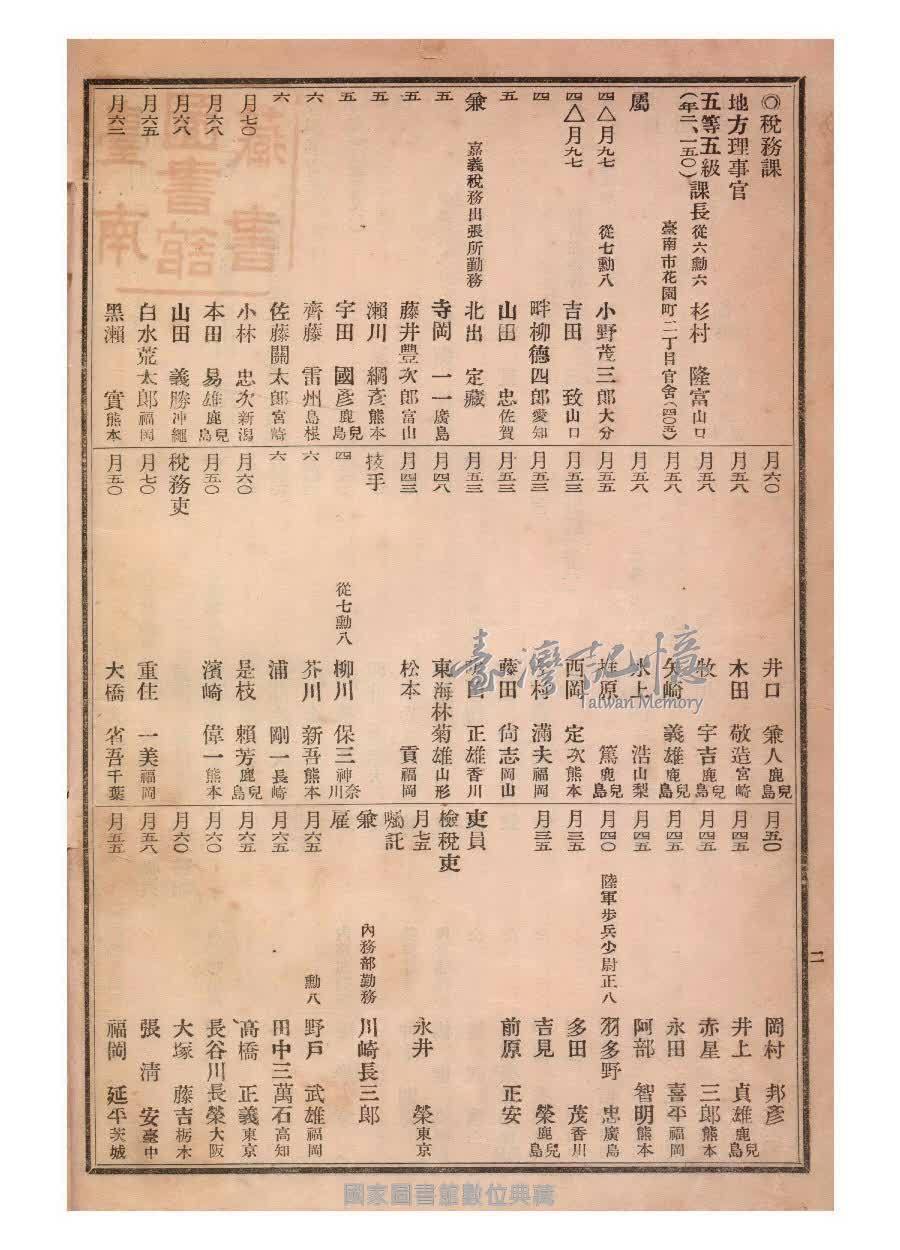 ◎稅務課
地方理事官
五等五級 課長 從六勳六 杉村 隆富 山口
(年二、一五〇)
臺南市花園町二丁目官舍(四〇五)
屬
四 △月九七 從七勳八 小野茂三郎 大分
四 △月九七 吉田 致 山口
四 畔柳德四郎 愛知
五 山田 忠 佐賀
兼 嘉義稅務出張所勤務 北出 定藏
五 寺岡 一一 廣島
五 藤井豊次郎 富山
五 瀨川 綱彥 熊本
五 宇田 國彥 鹿兒島
六 齊藤 雷州 島根
六 佐藤關太郎 宮崎
月七〇 小林 忠次 新潟
月六八 本田 易雄 鹿兒島
月六八 山田 義勝 沖繩
月六五 白水荒太郎 福岡
月六二 黑瀨 實 熊本
月六〇 井口 兼人 鹿兒島
月五八 木田 敬造 宮崎
月五八 牧 宇吉 鹿兒島
月五八 矢崎 義雄 鹿兒島
月五八 水上 浩 山梨
月五五 原 篤 鹿兒島
月五三 西岡 定次 熊本
月五三 村 滿夫 福岡
月五三 藤田 尙志 岡山
月五三 田 正雄 香川
月四八 東海林菊雄 山形
月四三 松本 貢 福岡
技手
四 從七勳八 柳川 保三 神奈川
六 芥川 新吾 熊本
六 浦 剛一 長崎
月六〇 是枝 賴芳 鹿兒島
月五〇 濱崎 偉一 熊本
稅務吏
月七〇 重住 一美 福岡
月五〇 大橋 省吾 千葉
月五〇 岡村 邦彥
月四五 井上 貞雄 鹿兒島
月四五 赤星 三郎 熊本
月四五 永田 喜平 福岡
月四五 阿部 智明 熊本
月四〇 陸軍步兵少尉正八 羽多野 忠 廣島
月三五 多田 茂 香川
月三五 吉見 榮 鹿兒島
前原 正安
吏員
檢稅吏
月七五 永井 榮 東京
囑託
兼 內務部勤務 川崎長三郎
雇
月六五 勳八 野戶 武雄 福岡
月六五 田中三萬石 高知
月六五 高橋 正義 東京
月六〇 長谷川長榮 大阪
月六〇 大塚 藤吉 栃木
月五八 張 淸 安 臺中
月五五 福岡 延平 茨城
二
臺灣記憶
Taiwan Memory
國家圖書館數位典藏